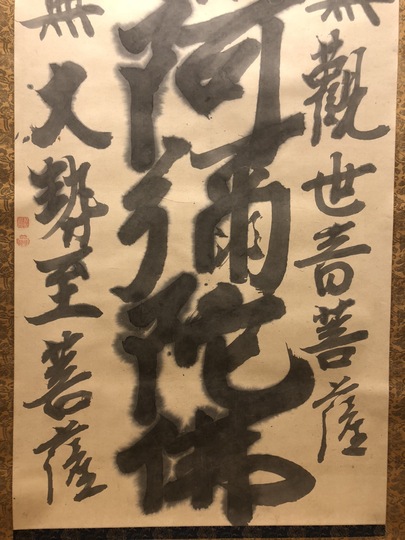 無觀世音菩薩
阿彌陀佛
無大勢至菩薩